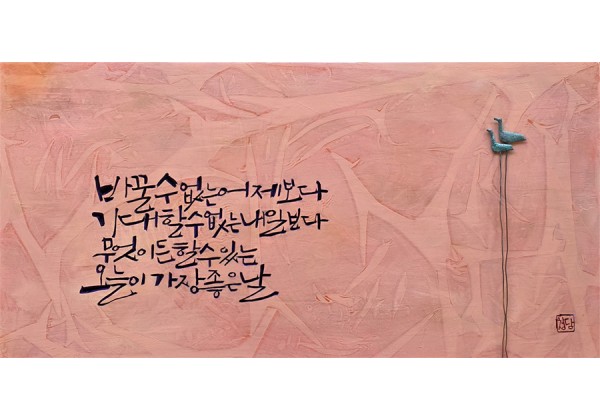 바꿀수없는어제보다
기대할수없는내일보다
무엇이든할수있는
오늘이 가장좋은날